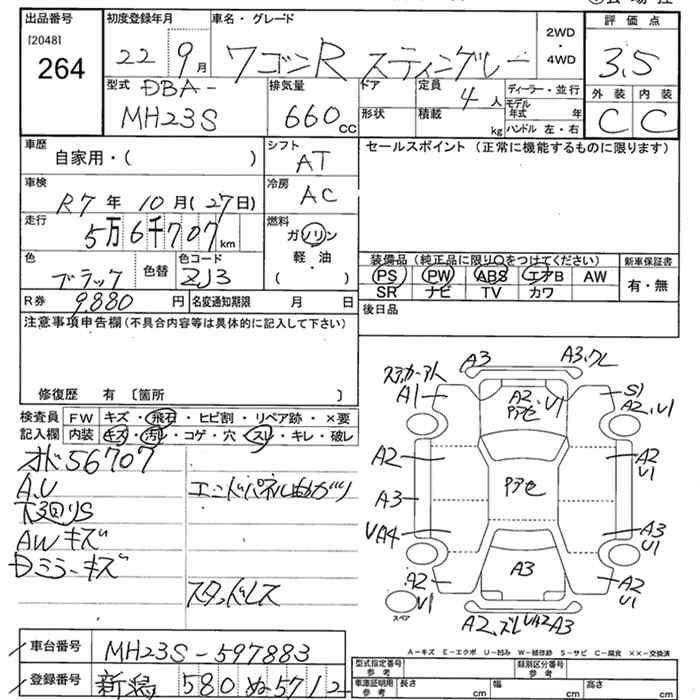 出品番号 初度登録年月 車名・グレード 評価点
[2048]
264 22 9月 ワゴンR スティングレー 2WD・4WD 3.5
型式 DBA- 排気量 ドア 定員 4人 ディーラー・並行 外装 内装
MH23S 660cc 形状 積載 kg モデル年式 年 ハンドル 左・右 C C
車歴 シフト セールスポイント (正常に機能するものに限ります)
自家用・( ) AT
車検 冷房
R7年 10月(27日) AC
走行 燃料
5万6千707km ガソリン・軽油
( )
色 色替 色コード 装備品 (純正品に限り○をつけてください) 新車保証書
ブラック ZJ3 PS PW ABS エアB AW 有・無
SR ナビ TV カワ
R券 9,880円 名変通知期限 月 日 後日品
注意事項申告欄(不具合内容等は具体的に記入して下さい)
修復歴 有 〔箇所 〕
検査員 FW キズ・飛石・ヒビ割・リペア跡・×要
記入欄 内装 キズ・汚レ・コゲ・穴・スレ・キレ・破レ
オド56707
A.U エンドパネル曲ガリ
下廻りS
AWキズ
Dミラーキズ
スタッドレス
A3 A3,クレ
A1 A2 U1 S1
A2,U1
A2 アセ A2
U1
A3
VA4 A3
U1
A2 A3 A2
U1
U1
スペア
A2,ズレ UA2 A3
A-キズ E-エクボ U-凹み W-補修跡 S-サビ C-腐食 ××-交換済
車台番号 MH23S-597883
登録番号 新潟 580 ぬ 5712
型式指定番号 参考 類別区分番号 参考
車庫証明用 参考 長さ cm 幅 cm 高さ cm